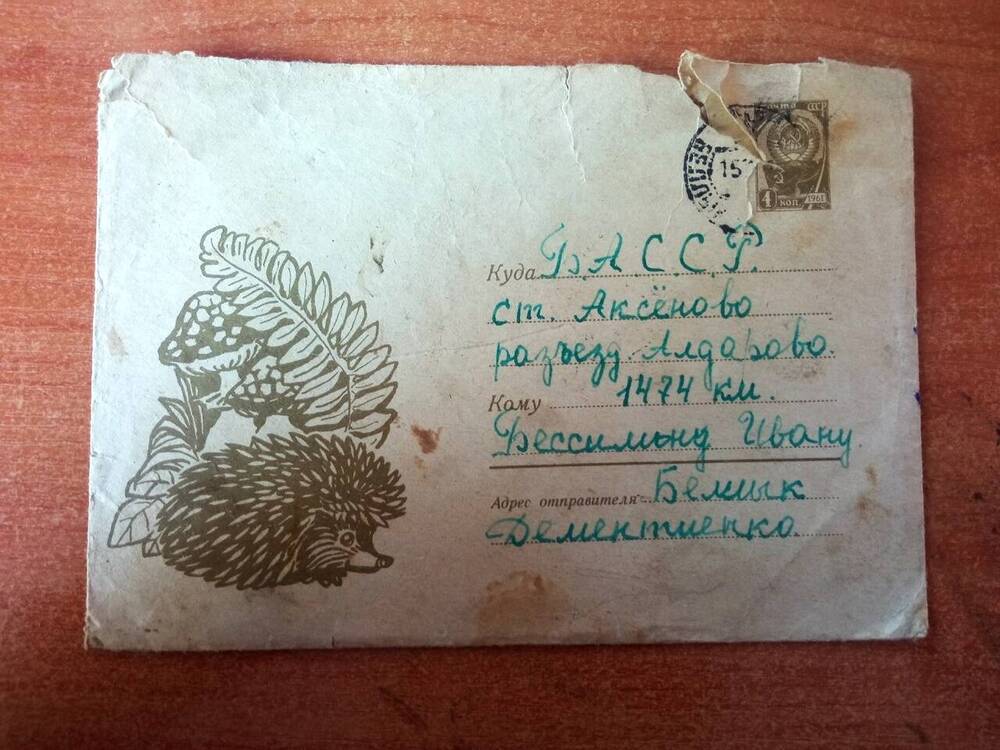 почта СССР
15
4 коп. 1961
Куда Б. А. С. С. Р.
ст. Аксёново
разъезд Алдарово.
Кому 1474 км.
Бессильнд Ивану.
Адрес отправителя: Бемык
Дементиенко.